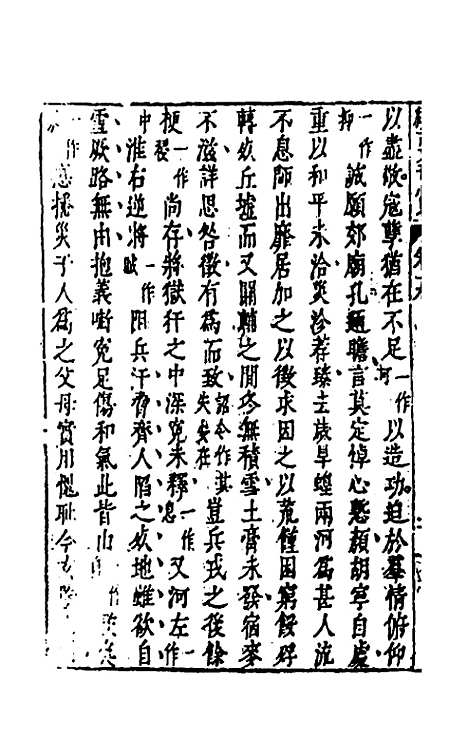 以盡㷼寇孽猶在不足一作可以造功迫於羣情俯仰
一作抑誠願郊廟孔邇瞻言莫定悼心懸顏胡寧自處
重以和平未洽災沴荐臻去歲旱蝗兩河爲甚人流
不息師出靡居加之以徵求因之以荒饉困窮餒殍
轉於丘墟而又關輔之間冬無積雪土膏未發宿麥
不滋詳思咎徵有爲而致詔令作其失安在豈兵戎之後餘
梗一作尚存將獄犴之中深寃未釋一作息又河左一作
中淮右逆將一作賊阻兵汗脅齊人陷之於地雖欲自
雪厥路無由抱義銜寃足傷和氣此皆由
一作 災于人爲之父母實用愧耻今